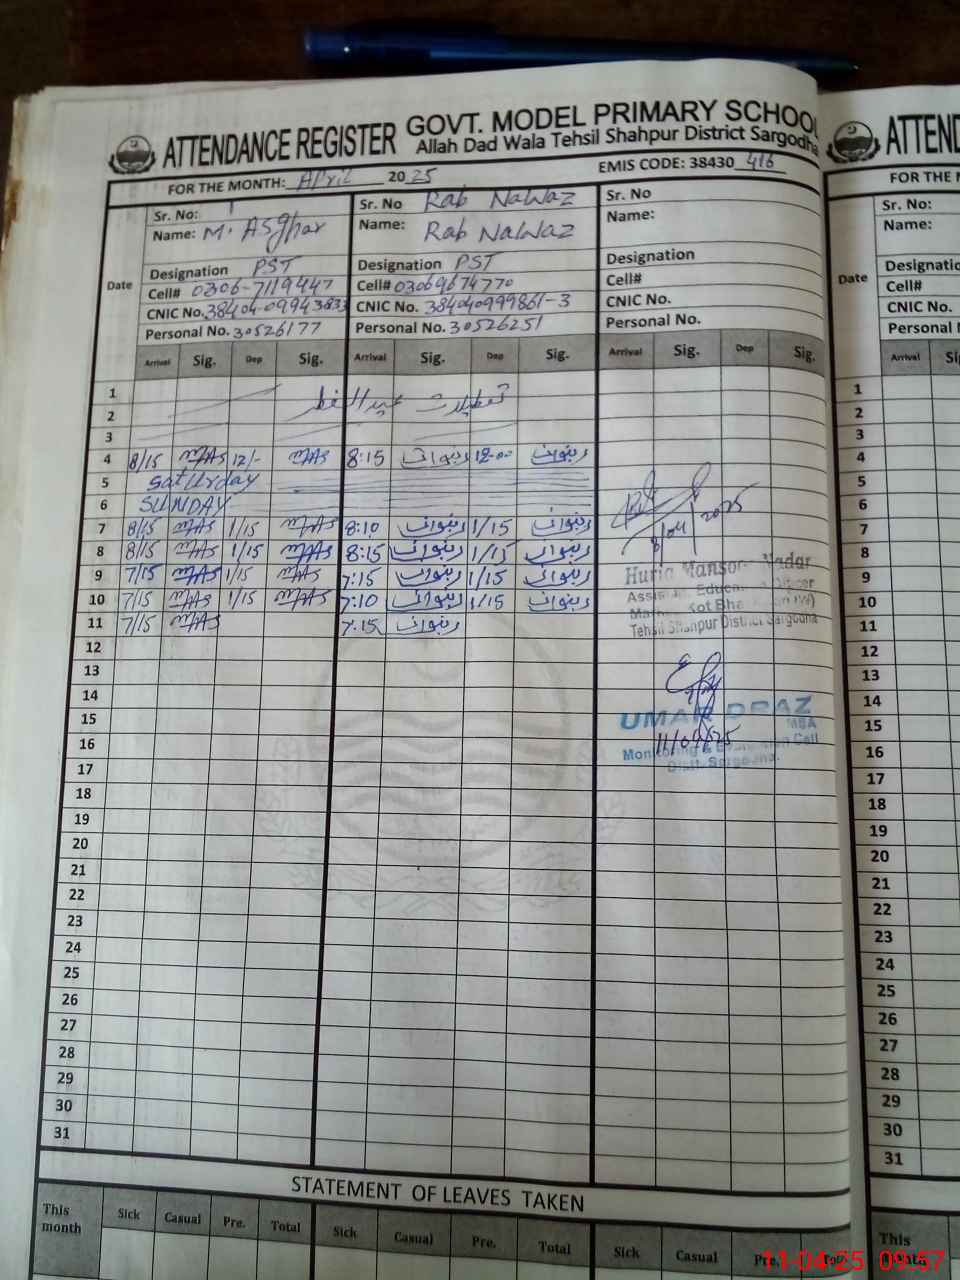 ATTENDANCE REGISTER GOVT. MODEL PRIMARY SCHOOL
Allah Dad Wala Tehsil Shahpur District Sargodha
FOR THE MONTH: April 2025 EMIS CODE: 38430 416
Date
Sr. No: 1
Name: M. Asghar
Designation PST
Cell# 0306-7119447
CNIC No. 38404-0994383
Personal No. 30526177
Sr. No Rab Nawaz
Name: Rab Nawaz
Designation PST
Cell# 03069674770
CNIC No. 384040999861-3
Personal No. 30526251
Sr. No
Name:
Designation
Cell#
CNIC No.
Personal No.
Arrival Sig. Dep Sig. Arrival Sig. Dep Sig. Arrival Sig. Dep Sig.
1
2 تعطیلات عیدالفطر
3
4 8/15 MAS 12/- MAS 8:15 ربنواز 12-00 ربنواز
5 Saturday
6 SUNDAY
7 8/15 MAS 1/15 MAS 8:10 ربنواز 1/15 ربنواز
8 8/15 MAS 1/15 MAS 8:15 ربنواز 1/15 ربنواز
9 7/15 MAS 1/15 MAS 7:15 ربنواز 1/15 ربنواز
10 7/15 MAS 1/15 MAS 7:10 ربنواز 1/15 ربنواز
11 7/15 MAS 7:15 ربنواز
12
13
14
15
16
17
18
19
20
21
22
23
24
25
26
27
28
29
30
31
8/04/2025
Huria Mansoor Nadar
Tehsil Shahpur District Sargodha
UMAR DRAZ
MBA
11/04/25
Monitoring & Evaluation Cell
Distt. Sargodha.
STATEMENT OF LEAVES TAKEN
This month Sick Casual Pre. Total Sick Casual Pre. Total Sick Casual Pre.
ATTEND
FOR THE M
Date
Sr. No:
Name:
Designatio
Cell#
CNIC No.
Personal N
Arrival
1
2
3
4
5
6
7
8
9
10
11
12
13
14
15
16
17
18
19
20
21
22
23
24
25
26
27
28
29
30
31
This
11-04-25 09:57